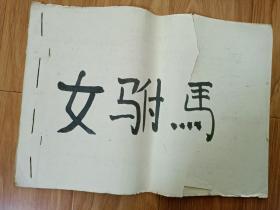 女驸馬